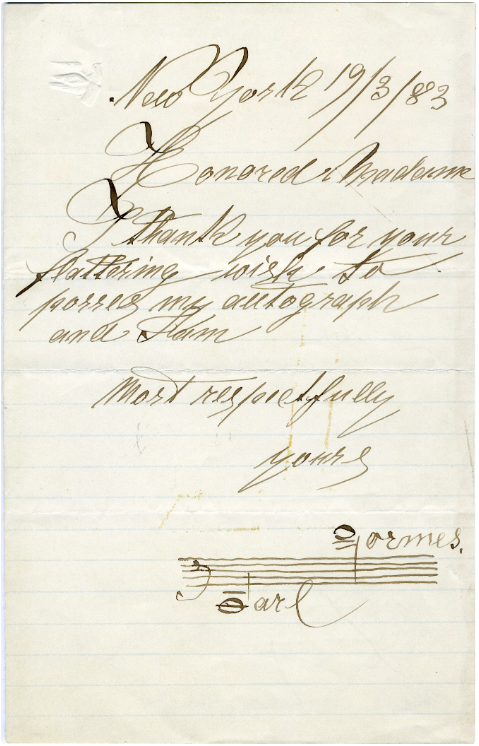 New York 19/3/83
Honored Madame
I thank you for your
flattering wish to
posses my autograph
and I am
Most respectfully
yours
ormes.
arl